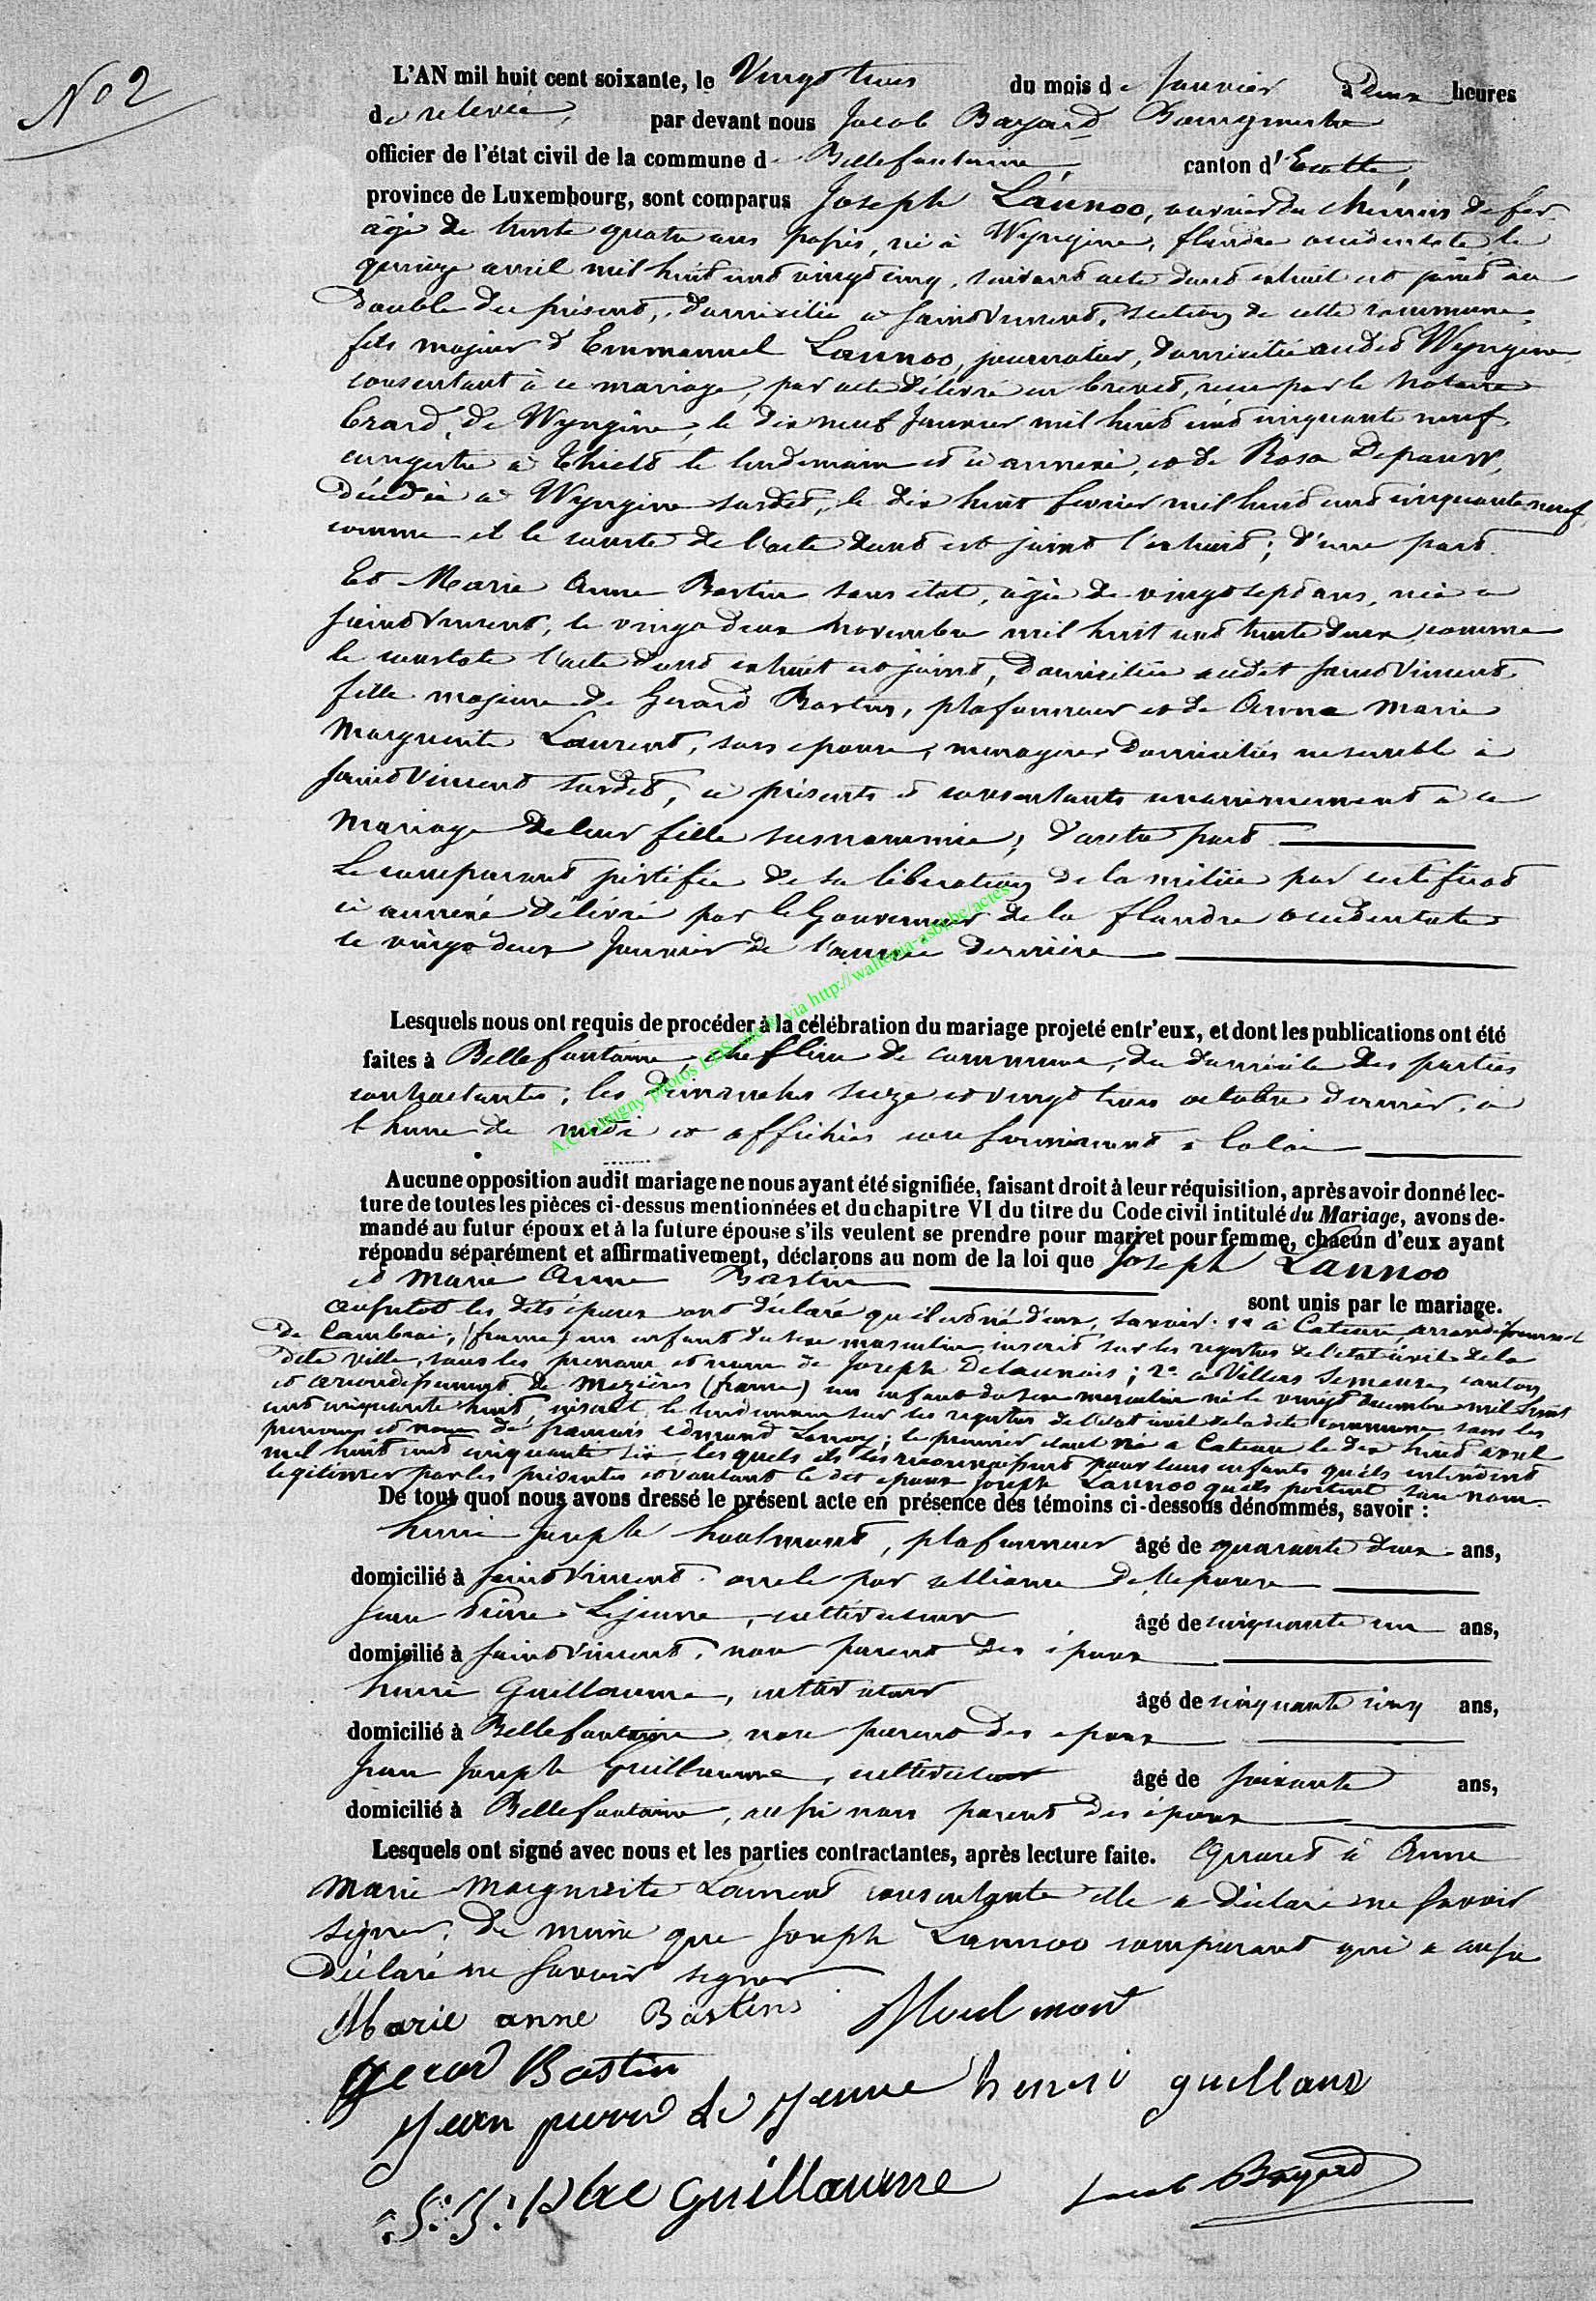 No 2
L'AN mil huit cent soixante, le Vingt trois du mois de Janvier à deux heures
de relevée, par devant nous Jacob Bayard Bourgmestre
officier de l'état civil de la commune de Bellefontaine, canton d'Etalle,
province de Luxembourg, sont comparus Joseph Lannoo, ouvrier du chemin de fer
âgé de trente quatre ans passés, né à Wyngene, flandre occidentale le
quinze avril mil huit cent vingt cinq, suivant acte dont extrait est joint au
double du présent, domicilié à Saint Vincent, section de cette commune,
fils majeur d'Emmanuel Lannoo, journalier, domicilié audit Wyngene
consentant à ce mariage, par acte délivré en brevet, reçu par le Notaire
de Wyngene, le dix neuf Janvier mil huit cent cinquante neuf,
enregistré à Thielt le lendemain et ci annexé, et de Rosa Depauw,
décédée à Wyngene susdit, le dix huit fevrier mil huit cent cinquante neuf
comme il le conste de l'acte dont est joint l'extrait; d'une part.
Et Marie Anne Bastin sans état, âgée de vingt sept ans, née à
Saint Vincent, le vingt deux novembre mil huit cent trente deux, comme
le constate l'acte dont extrait est joint, domiciliée audit Saint Vincent
fille majeure de Gerard Bastin, plafonneur et de Anne Marie
Marguerite Laurent, son epouse, menagere domiciliés ensemble à
Saint Vincent susdit, ci présents et consentants unanimement à ce
Mariage de leur fille susnommée; d'autre part
Le comparant justifie de sa libération de la milice par certificat
ci annexé délivré par le Gouverneur de la flandre occidentale
le vingt deux Janvier de l'année dernière
Lesquels nous ont requis de procéder à la célébration du mariage projeté entr'eux, et dont les publications ont été
faites à Bellefontaine, chef lieu de commune, du domicile des parties
contractantes, les dimanches seize et vingt trois octobre dernier, à
l'heure de midi et affichées conformément à la loi
Aucune opposition audit mariage ne nous ayant été signifiée, faisant droit à leur réquisition, après avoir donné lec-
ture de toutes les pièces ci-dessus mentionnées et du chapitre VI du titre du Code civil intitulé du Mariage, avons de-
mandé au futur époux et à la future épouse s'ils veulent se prendre pour mari et pour femme, chacun d'eux ayant
répondu séparément et affirmativement, déclarons au nom de la loi que Joseph Lannoo
et Marie Anne Bastin
sont unis par le mariage.
aussitot les dits époux ont déclaré qu'il est né d'eux, savoir: 1° à Cateau, arrondissement
de Cambrai, (france) un enfant du sexe masculin inscrit sur les registres de l'etat civil de la
dite ville, sous les prenom et nom de Joseph Delaunois; 2° à Villers Semeuse, canton
et arrondissement de Mezières (france) un enfant du sexe masculin né le vingt decembre mil huit
cent cinquante huit inscrit le lendemain sur les registres de l'etat civil de la dite commune sous les
prenoms et nom de françois edmond Lanoy; le premier etant né à Cateau le dix huit avril
mil huit cent cinquante six, les quels ils les reconnaissent pour leurs enfants qu'ils entendent
legitimer par les présentes et voulant le dit epoux Joseph Lannoo qu'ils portent son nom.
De tout quoi nous avons dressé le présent acte en présence des témoins ci-dessous dénommés, savoir :
henri Joseph houlmont, plafonneur âgé de quarante deux ans,
domicilié à Saint Vincent oncle par alliance de l'epouse
Jean Pierre Lejeune, cultivateur âgé de cinquante un ans,
domicilié à Saint Vincent, non parent des époux
henri Guillaume, cultivateur âgé de cinquante cinq ans,
domicilié à Bellefontaine non parent des epoux
Jean Joseph Guillaume, cultivateur âgé de soixante ans,
domicilié à Bellefontaine, aussi non parent des époux
Lesquels ont signé avec nous et les parties contractantes, après lecture faite. Quant à Anne
Marie Marguerite Laurent consentante elle a déclaré ne savoir
signer, de même que Joseph Lannoo comparant qui a aussi
déclaré ne savoir signer
Marie anne Bastin Houlmont
Gerard Bastin
Jean pierre Le Jeune henri guillaume
J: J: Guillaume Jacob Bayard
A.C. Tintigny photos LDS via http://wallonia-asbl.be/actes